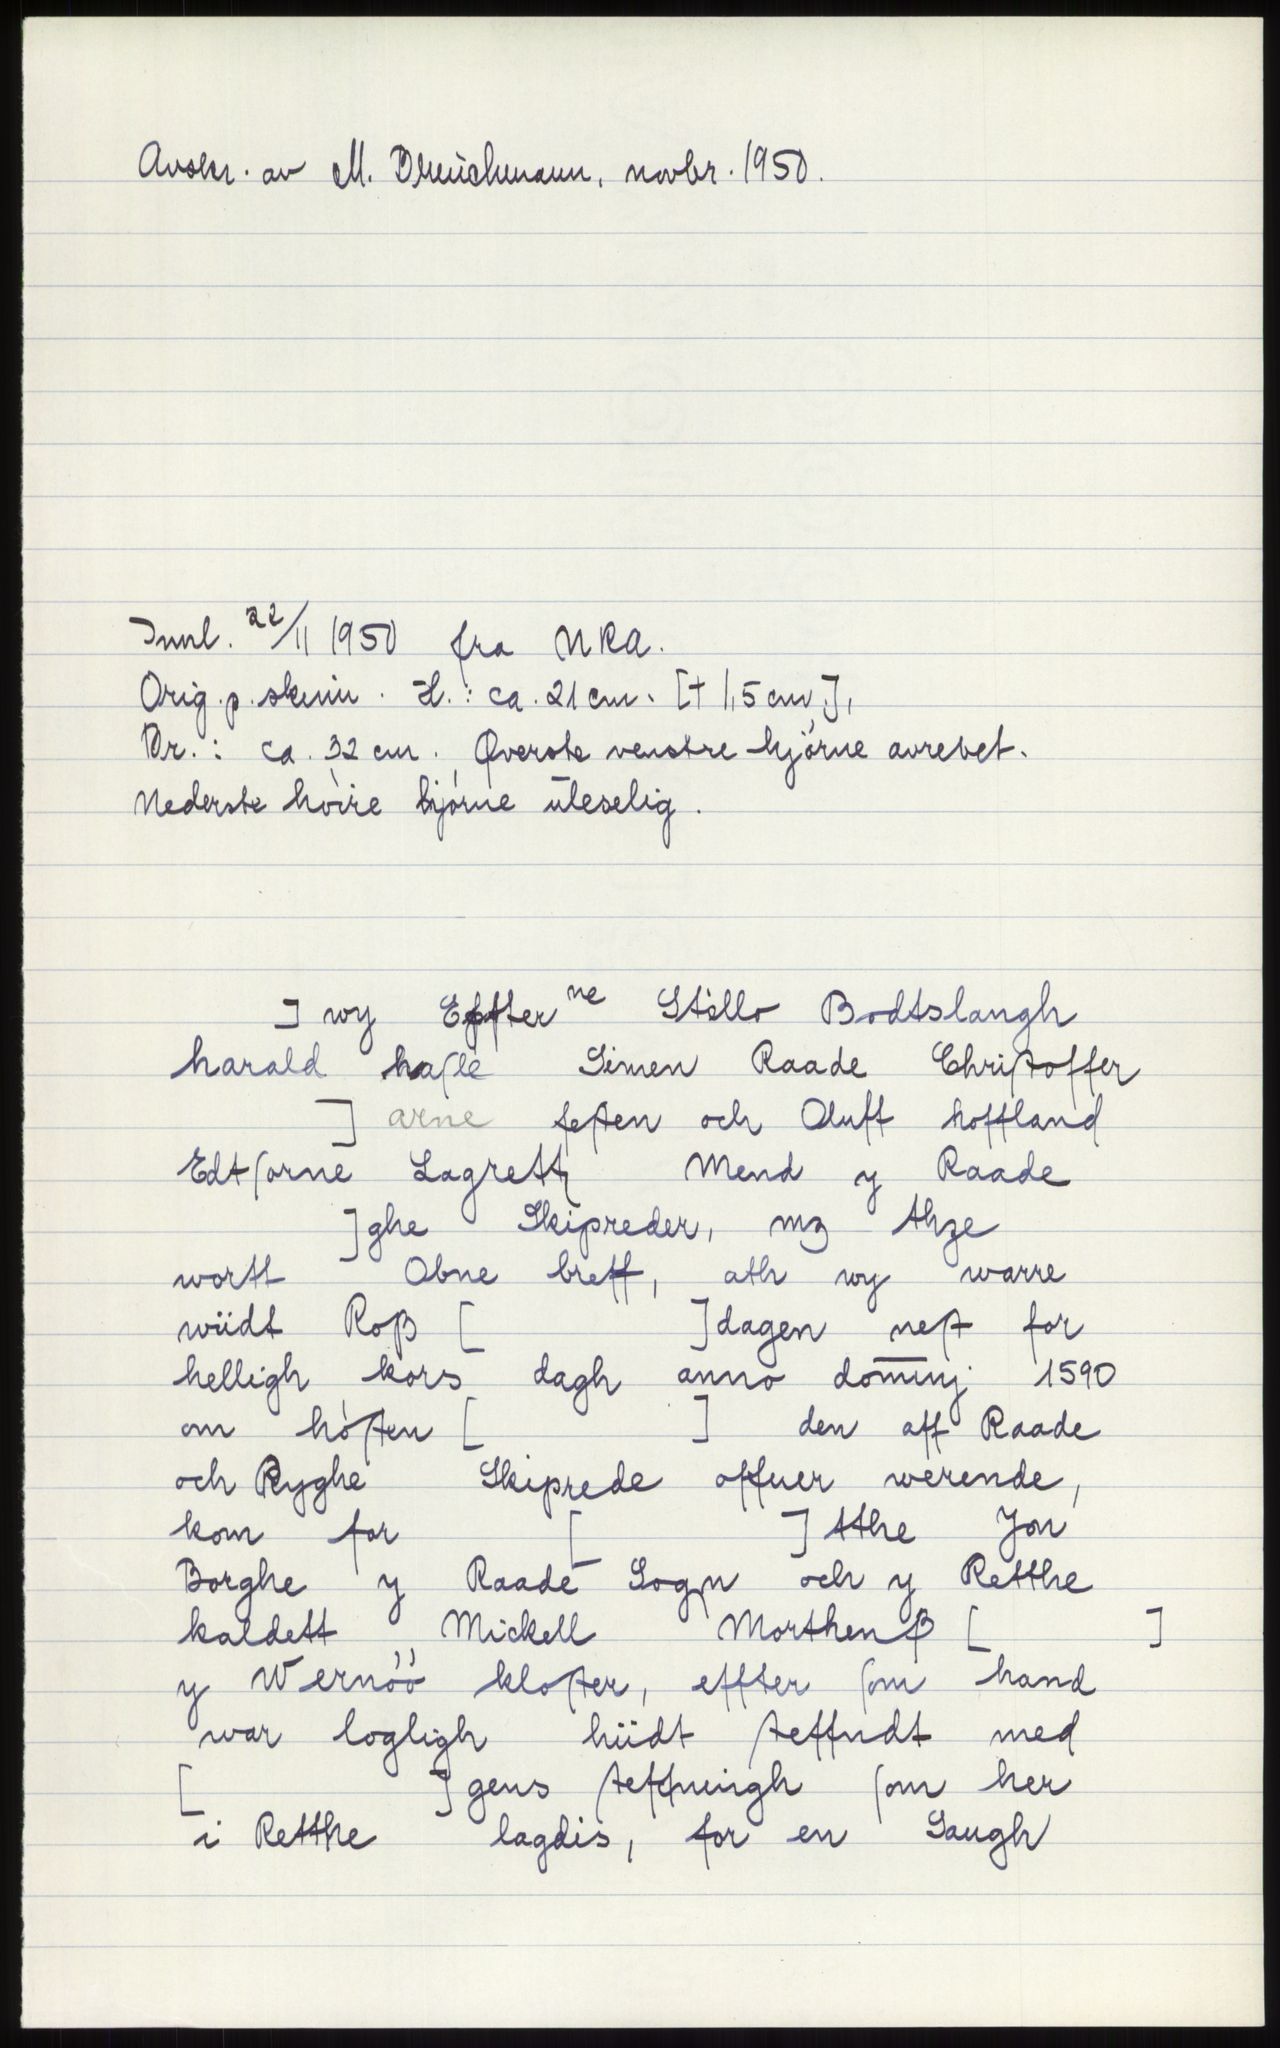 Avskr. av M. Dreuchmann, novbr. 1950.
Innl. 22/11 1950 fra NRA.
Orig. p. skinn. H.: ca. 21 cm. [+ 1,5 cm],
Br.: ca. 32 cm. Øverste venstre hjørne avrevet.
Nederste høire hjørne uleselig.
] wy Effter ne Stillo Bodtslangh
harald haſle Simen Raade Chriſtoffer
] arne teſten och Oluff hoffland
Edtſorne Lagrett Mend y Raade
]ghe Skipreder, mz thze
wortt Obne breff, ath wy warre
wüdt Roß [ ]dagen neſt for
helligh kors dagh anno dominj 1590
om höſten [ ] den aff Raade
och Ryghe Skiprede offuer werende,
kom for [ ] tthe Jon
Borghe y Raade Sogn och y Retthe
kaldett Mickell Morthenß [ ]
y Wernöö kloſter, effter ſom hand
war logligh hüdt ſteffndt med
[ ]gens ſteffningh ſom her
i Retthe lagdis, for en Saugh